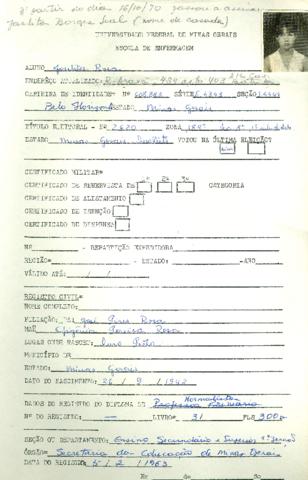 A partir do dia 16/10/70 passou a assinar
Joselita Borges Leal (nome de casada)
UNIVERSIDADE FEDERAL DE MINAS GERAIS
ESCOLA DE ENFERMAGEM
ALUNO Rosa
ENDEREÇO ATUALIZADO
CARTEIRA DE IDENTIDADE Nº SÉRIE SEÇÃO
Belo Horizonte ESTADO Minas Gerais
TÍTULO ELEITORAL - Nº 2620 ZONA
ESTADO Minas Gerais VOTOU NA ÚLTIMA ELEIÇÃO?
CERTIFICADO MILITAR
CERTIFICADO DE RESERVISTA DE 1ª 2ª 3ª CATEGORIA
CERTIFICADO DE ALISTAMENTO
CERTIFICADO DE ISENÇÃO
CERTIFICADO DE DISPENSA
Nº - REPARTIÇÃO EXPEDIDORA
REGIÃO - ESTADO: - ANO
VÁLIDO ATÉ: / /
REGISTRO CIVIL
NOME COMPLETO:
FILIAÇÃO: PAI José Pires Rosa
MÃE Efigênia Pereira Rosa
LUGAR ONDE NASCEU: Ouro Preto
MUNICÍPIO DE
ESTADO: Minas Gerais
DATA DO NASCIMENTO: 26 / 9 / 1942
DADOS DE REGISTRO DO DIPLOMA DE Normalista
Professora Primária
Nº DO REGISTRO: — LIVRO 31 FLS 300
SEÇÃO OU DEPARTAMENTO: Ensino Secundário e Superior
ÓRGÃO: Secretaria da Educação de Minas Gerais
DATA DO REGISTRO 5 / 2 / 1963